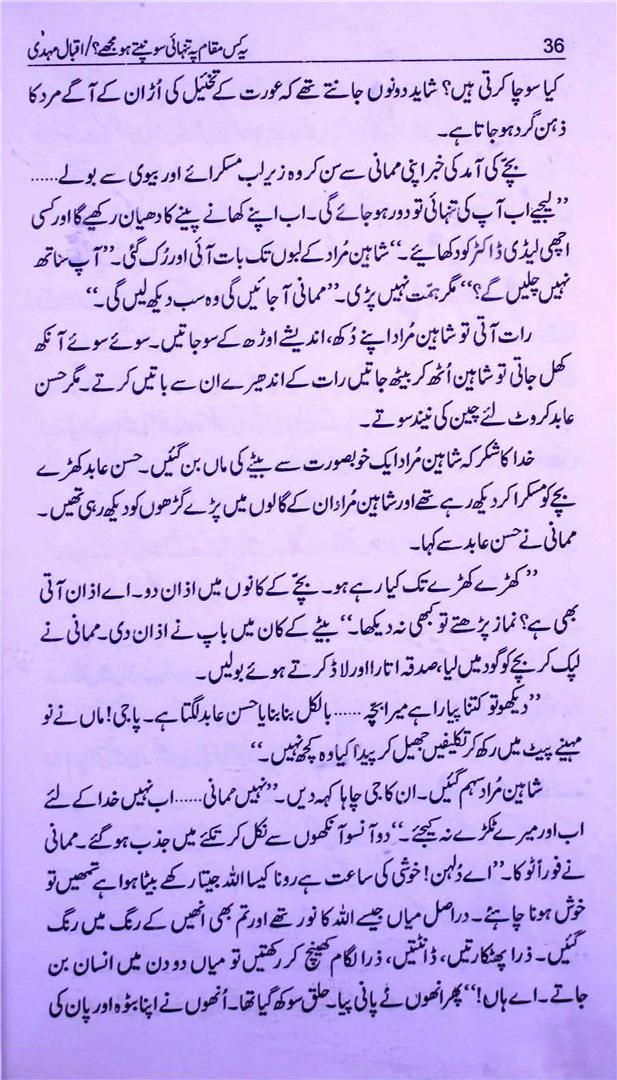 36 یہ کس مقام پہ تنہائی سونپتے ہو مجھے؟/اقبال مہدی
کیا سوچا کرتی ہیں؟ شاید دونوں جانتے تھے کہ عورت کے تخئیل کی اُڑان کے آگے مرد کا
ذہن گرد ہو جاتا ہے۔
بچّے کی آمد کی خبر اپنی ممانی سے سن کر وہ زیرِ لب مسکرائے اور بیوی سے بولے......
”لیجیے اب آپ کی تنہائی تو دور ہو جائے گی۔ اب اپنے کھانے پینے کا دھیان رکھیے گا اور کسی
اچھی لیڈی ڈاکٹر کو دکھائیے۔“ شاہین مُراد کے لبوں تک بات آئی اور رُک گئی۔ ”آپ ساتھ
نہیں چلیں گے؟“ مگر ہمّت نہیں پڑی۔ ”ممانی آ جائیں گی وہ سب دیکھ لیں گی۔“
رات آتی تو شاہین مُراد اپنے دُکھ، اندیشے اوڑھ کے سو جاتیں۔ سوئے سوئے آنکھ
کھل جاتی تو شاہین اُٹھ کر بیٹھ جاتیں رات کے اندھیرے ان سے باتیں کرتے۔ مگر حسن
عابد کروٹ لئے چین کی نیند سوتے۔
خدا کا شکر کہ شاہین مُراد ایک خوبصورت سے بیٹے کی ماں بن گئیں۔ حسن عابد کھڑے
بچے کو مسکرا کر دیکھ رہے تھے اور شاہین مُراد ان کے گالوں میں پڑے گڑھوں کو دیکھ رہی تھیں۔
ممانی نے حسن عابد سے کہا۔
”کھڑے کھڑے تک کیا رہے ہو۔ بچّے کے کانوں میں اذان دو۔ اے اذان آتی
بھی ہے؟ نماز پڑھتے تو کبھی نہ دیکھا۔“ بیٹے کے کان میں باپ نے اذان دی۔ ممانی نے
لپک کر بچے کو گود میں لیا، صدقہ اتارا اور لاڈ کرتے ہوئے بولیں۔
”دیکھو تو کتنا پیارا ہے میرا بچہ...... بالکل بنا بنایا حسن عابد لگتا ہے۔ پاجی! ماں نے نو
مہینے پیٹ میں رکھ کر تکلیفیں جھیل کر پیدا کیا وہ کچھ نہیں۔“
شاہین مُراد سہم گئیں۔ ان کا جی چاہا کہہ دیں۔ ”نہیں ممانی...... اب نہیں خدا کے لئے
اب اور میرے ٹکڑے نہ کیجئے۔“ دو آنسو آنکھوں سے نکل کر تکئے میں جذب ہو گئے۔ ممانی
نے فوراً ٹوکا۔ ”اے دُلہن! خوشی کی ساعت ہے رونا کیسا اللہ جیتا رکھے بیٹا ہوا ہے تمھیں تو
خوش ہونا چاہئے۔ دراصل میاں جیسے اللہ کا نور تھے اور تم بھی انھیں کے رنگ میں رنگ
گئیں۔ ذرا پھٹکارتیں، ڈانٹتیں، ذرا لگام کھینچ کر رکھتیں تو میاں دو دن میں انسان بن
جاتے۔ اے ہاں!“ پھر انھوں نے پانی پیا۔ حلق سوکھ گیا تھا۔ اُنھوں نے اپنا بٹوہ اور پان کی